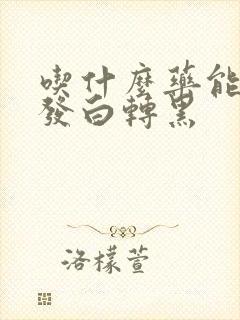 喫什麼藥能
發白轉黑
洛檬萱